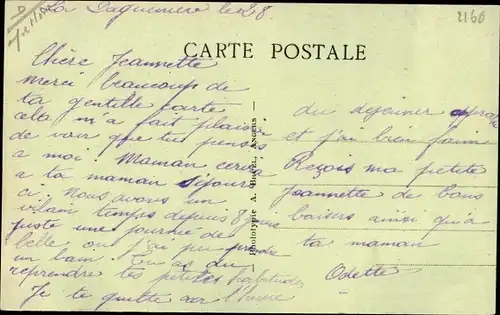 La Daguenière le 28
2160
CARTE POSTALE
Chère Jeannette
merci beaucoup de
ta gentille carte
cela m'a fait plaisir
de voir que tu penses
a moi. Maman
a ta maman
ci. Nous avons un
vilain temps depuis 8 jours
juste une journée de
belle ou j'ai pu prendre
un bain. Tu as du
reprendre tes petites habitudes
Je te quitte car l'heure
Phototypie A. Bruel, Angers
du déjeuner approche
et j'ai bien faim
Reçois ma petite
Jeannette de bons
baisers ainsi qu'a
ta maman
Odette